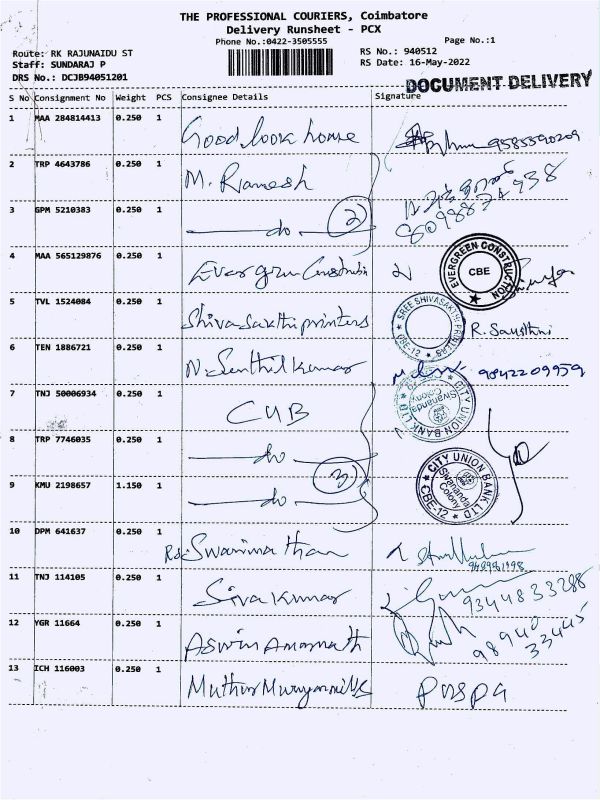 THE PROFESSIONAL COURIERS, Coimbatore
Delivery Runsheet - PCX
Phone No.:0422-3505555
Page No.:1
Route: RK RAJUNAIDU ST
RS No.: 940512
Staff: SUNDARAJ P
RS Date: 16-May-2022
DRS No.: DCJB94051201
DOCUMENT DELIVERY
S No Consignment No Weight PCS Consignee Details Signature
1 MAA 284814413 0.250 1 Good look home 9585590209
2 TRP 4643786 0.250 1 M. Ramesh
3 GPM 5210383 0.250 1 do 2 8098874938
4 MAA 565129876 0.250 1 Evergreen Construction
EVERGREEN CONSTRUCTION CBE
5 TVL 1524084 0.250 1 Shivasakthi printers
SREE SHIVASAKTHI PRINTERS CBE-12
6 TEN 1886721 0.250 1 N. Senthil Kumar 9842209959
7 TNJ 50006934 0.250 1 CUB
CITY UNION BANK LTD Sivananda Colony
8 TRP 7746035 0.250 1 do
9 KMU 2198657 1.150 1 do 3
CITY UNION BANK LTD Sivananda Colony CBE-12
10 DPM 641637 0.250 1 Swaminathan
11 TNJ 114105 0.250 1 Siva Kumar 9344833288
12 YGR 11664 0.250 1 Aswin Amarnath 98940 33445
13 ICH 116003 0.250 1 Puspa